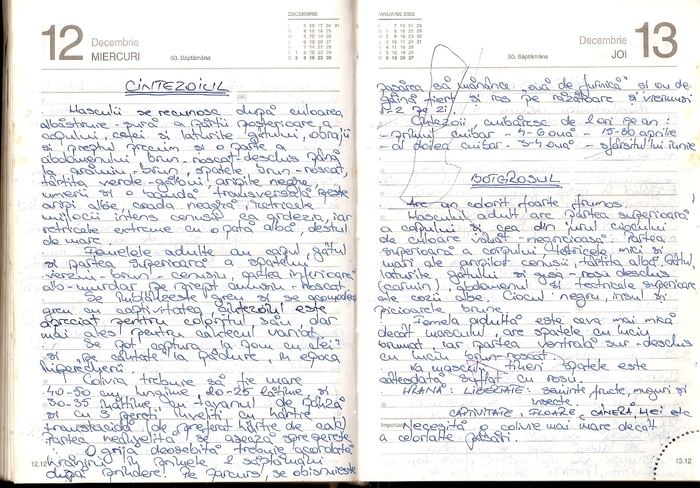 12 Decembrie
MIERCURI
50. Săptămâna
DECEMBRIE
CINTEZOIUL
Masculii se recunosc după culoarea
albăstruie-sură a părții posterioare a
capului, cefei și laturile gâtului, obrajii
și pieptul precum și o parte a
abdomenului brun-roșcat-deschis până
la arămiu-brun, spatele brun-roșcat,
târtița verde-gălbui, aripile negre,
umerii și banda transversală peste
aripi albe, coada neagră, rectricele
mijlocii intens cenușii ca ardezia, iar
retricele extreme cu o pată albă, destul
de mare.
Femelele adulte au capul, gâtul
și partea superioară a spatelui
verziu-brun-cenușiu, partea inferioară
alb-murdar pe piept cenușiu-roșcat.
Se îmblânzește greu și se acomodează
greu cu captivitatea, cintezoiul este
apreciat pentru coloritul său, dar
mai ales pentru cântecul variat.
Se pot captura la pom cu clei
și "pe căutate" la pădure, în epoca
împerecherii.
Colivia trebuie să fie mare
40-50 cm lungime, 20-25 lățime și
30-35 înălțime, cu tavanul de pânză
și cu 3 pereți înveliți cu hârtie
translucidă (de preferat hârtie de calc)
Partea neînvelită se așează spre perete.
O grijă deosebită trebuie acordată
hrănirii în primele 2 săptămâni
după prindere. Pe parcurs, se obișnuiește
12.12
IANUARIE 2002
50. Săptămâna
Decembrie 13
JOI
pasărea să mănânce "ouă de furnică" și ou de
găină fiert și ras pe răzătoare și viermuși
1-2 pe zi.
Cintezoii cuibăresc de 2 ori pe an:
- primul cuibar - 4-6 ouă - 15-30 aprilie
- al doilea cuibar - 3-4 ouă - sfârșitul lunie
BOTGROSUL
Are un colorit foarte frumos.
Masculul adult are partea superioară
a capului și cea din jurul ciocului
de culoare violet-negricioasă. Partea
superioară a corpului, tectricele mici și
mari ale aripilor cenușii, târtița albă. Gâtul,
laturile gâtului și gușa - roșu deschis
(carmin), abdomenul și tectricele superioare
ale cozii albe. Ciocul negru, irisul și
picioarele brune.
Femela adultă este ceva mai mică
decât masculul, are spatele cu luciu
brumat, iar partea ventrală sur-deschis
cu luciu brun-roșcat.
La masculii tineri spatele este
câteodată suflat cu roșu.
HRANĂ: LIBERTATE: semințe, fructe, muguri și
insecte.
CAPTIVITATE, FLOARE, CÂNEPĂ, MEI etc.
Important
Necesită o colivie mai mare decât
a celorlalte păsări.
13.12